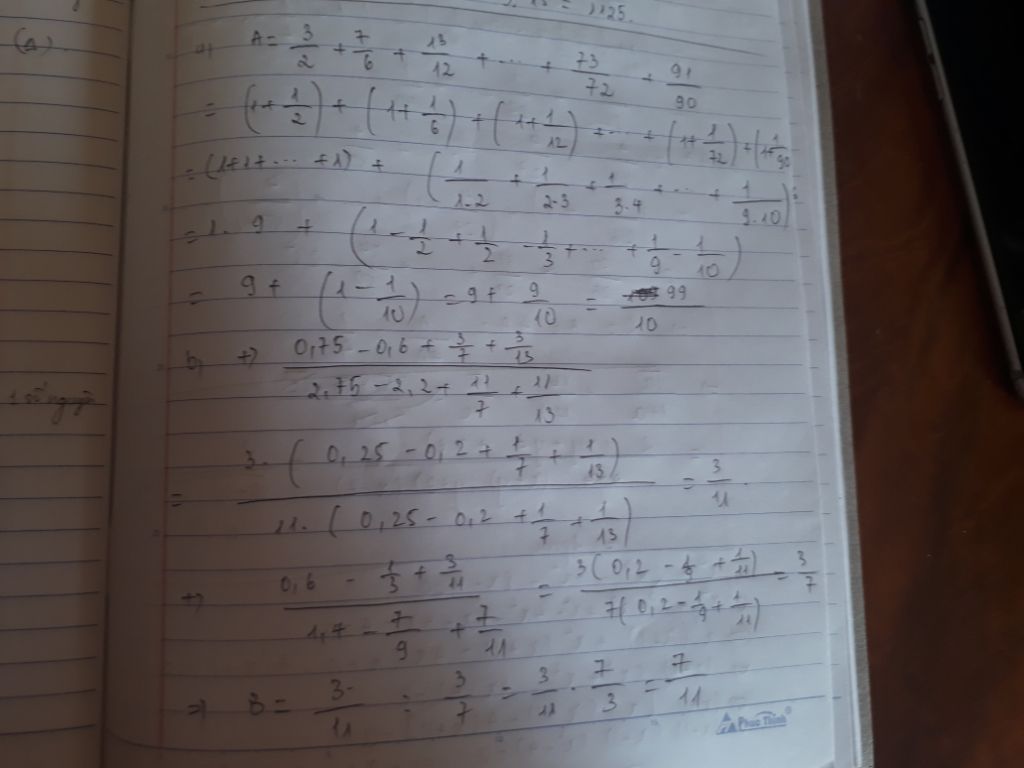 (a)
15 = 1125.
a, A = 3/2 + 7/6 + 13/12 + ... + 73/72 + 91/90
= (1 + 1/2) + (1 + 1/6) + (1 + 1/12) + ... + (1 + 1/72) + (1 + 1/90
= (1+1+ ... +1) + (1/1.2 + 1/2.3 + 1/3.4 + ... + 1/9.10)
= 1. 9 + (1 - 1/2 + 1/2 - 1/3 + ... + 1/9 - 1/10)
= 9 + (1 - 1/10) = 9 + 9/10 = 99/10
b, +) (0,75 - 0,6 + 3/7 + 3/13)/(2,75 - 2,2 + 11/7 + 11/13)
= 3.(0,25 - 0,2 + 1/7 + 1/13)/11.(0,25 - 0,2 + 1/7 + 1/13) = 3/11.
+) (0,6 - 1/3 + 3/11)/(1,7 - 7/9 + 7/11) = 3(0,2 - 1/9 + 1/11)/7(0,2 - 1/9 + 1/11) = 3/7
=> B = 3/11 : 3/7 = 3/11 . 7/3 = 7/11
Phuc Thinh